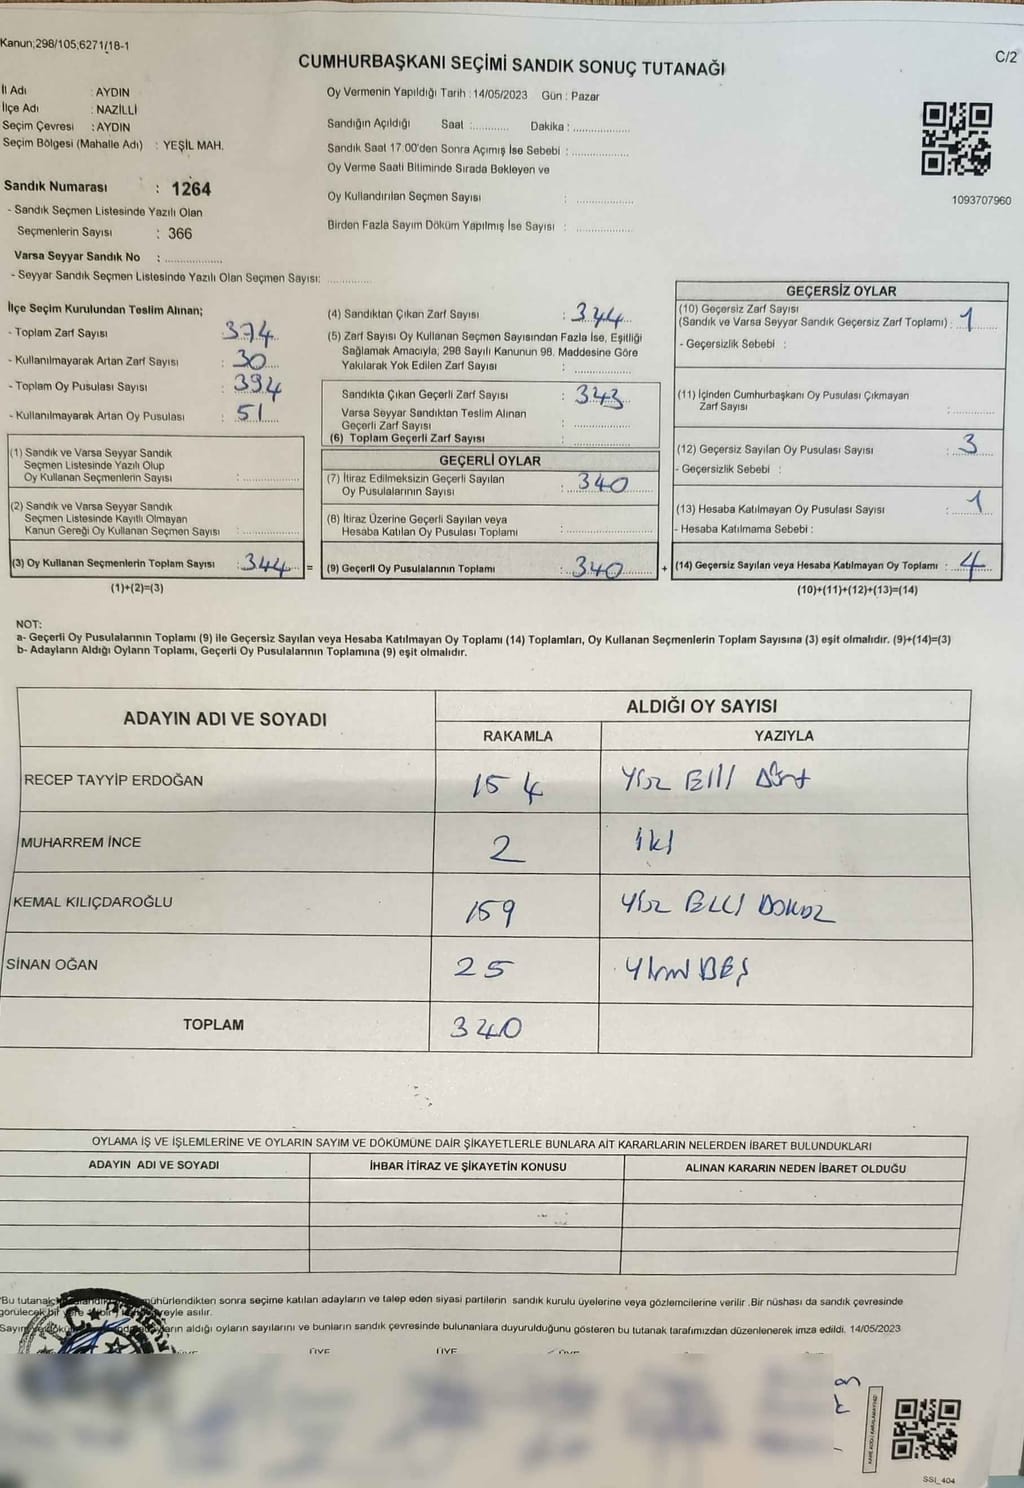 Kanun;298/105,6271/18-1
C/2
CUMHURBAŞKANI SEÇİMİ SANDIK SONUÇ TUTANAĞI
İl Adı : AYDIN
İlçe Adı : NAZİLLİ
Seçim Çevresi : AYDIN
Seçim Bölgesi (Mahalle Adı) : YEŞİL MAH.
Sandık Numarası : 1264
- Sandık Seçmen Listesinde Yazılı Olan
Seçmenlerin Sayısı : 366
Varsa Seyyar Sandık No : ..................
- Seyyar Sandık Seçmen Listesinde Yazılı Olan Seçmen Sayısı: ..............
Oy Vermenin Yapıldığı Tarih : 14/05/2023 Gün : Pazar
Sandığın Açıldığı Saat :............ Dakika : ..................
Sandık Saat 17:00'den Sonra Açımış İse Sebebi : ..................
Oy Verme Saati Bitiminde Sırada Bekleyen ve
Oy Kullandırılan Seçmen Sayısı : ..................
Birden Fazla Sayım Döküm Yapılmış İse Sayısı : ..................
1093707960
İlçe Seçim Kurulundan Teslim Alınan;
- Toplam Zarf Sayısı : 374
- Kullanılmayarak Artan Zarf Sayısı : 30
- Toplam Oy Pusulası Sayısı : 394
- Kullanılmayarak Artan Oy Pusulası : 51
(1) Sandık ve Varsa Seyyar Sandık
Seçmen Listesinde Yazılı Olup
Oy Kullanan Seçmenlerin Sayısı : ..................
(2) Sandık ve Varsa Seyyar Sandık
Seçmen Listesinde Kayıtlı Olmayan
Kanun Gereği Oy Kullanan Seçmen Sayısı : ..................
(3) Oy Kullanan Seçmenlerin Toplam Sayısı : 344 =
(1)+(2)=(3)
(4) Sandıktan Çıkan Zarf Sayısı : 344
(5) Zarf Sayısı Oy Kullanan Seçmen Sayısından Fazla İse, Eşitliği
Sağlamak Amacıyla, 298 Sayılı Kanunun 98. Maddesine Göre
Yakılarak Yok Edilen Zarf Sayısı : ..................
Sandıkta Çıkan Geçerli Zarf Sayısı : 343
Varsa Seyyar Sandıktan Teslim Alınan
Geçerli Zarf Sayısı : ..................
(6) Toplam Geçerli Zarf Sayısı : ..................
GEÇERLİ OYLAR
(7) İtiraz Edilmeksizin Geçerli Sayılan
Oy Pusulalarının Sayısı : 340
(8) İtiraz Üzerine Geçerli Sayılan veya
Hesaba Katılan Oy Pusulası Toplamı : ..................
(9) Geçerli Oy Pusulalarının Toplamı : 340 +
GEÇERSİZ OYLAR
(10) Geçersiz Zarf Sayısı
(Sandık ve Varsa Seyyar Sandık Geçersiz Zarf Toplamı) : 1
- Geçersizlik Sebebi :
(11) İçinden Cumhurbaşkanı Oy Pusulası Çıkmayan
Zarf Sayısı : ..................
(12) Geçersiz Sayılan Oy Pusulası Sayısı : 3
- Geçersizlik Sebebi :
(13) Hesaba Katılmayan Oy Pusulası Sayısı : 1
- Hesaba Katılmama Sebebi :
(14) Geçersiz Sayılan veya Hesaba Katılmayan Oy Toplamı : 4
(10)+(11)+(12)+(13)=(14)
NOT:
a- Geçerli Oy Pusulalarının Toplamı (9) ile Geçersiz Sayılan veya Hesaba Katılmayan Oy Toplamı (14) Toplamları, Oy Kullanan Seçmenlerin Toplam Sayısına (3) eşit olmalıdır. (9)+(14)=(3)
b- Adayların Aldığı Oyların Toplamı, Geçerli Oy Pusulalarının Toplamına (9) eşit olmalıdır.
ADAYIN ADI VE SOYADI
ALDIĞI OY SAYISI
RAKAMLA YAZIYLA
RECEP TAYYİP ERDOĞAN 154 Yüz Elli Dört
MUHARREM İNCE 2 iki
KEMAL KILIÇDAROĞLU 159 Yüz ELLİ DOKUZ
SİNAN OĞAN 25 Yirmi BEŞ
TOPLAM 340
OYLAMA İŞ VE İŞLEMLERİNE VE OYLARIN SAYIM VE DÖKÜMÜNE DAİR ŞİKAYETLERLE BUNLARA AİT KARARLARIN NELERDEN İBARET BULUNDUKLARI
ADAYIN ADI VE SOYADI İHBAR İTİRAZ VE ŞİKAYETİN KONUSU ALINAN KARARIN NEDEN İBARET OLDUĞU
Bu tutanak mühürlendikten sonra seçime katılan adayların ve talep eden siyasi partilerin sandık kurulu üyelerine veya gözlemcilerine verilir .Bir nüshası da sandık çevresinde
görülecek bir yere asılır.
aldığı oyların sayılarını ve bunların sandık çevresinde bulunanlara duyurulduğunu gösteren bu tutanak tarafımızdan düzenlenerek imza edildi. 14/05/2023
ÜYE ÜYE ÜYE
SSI_404